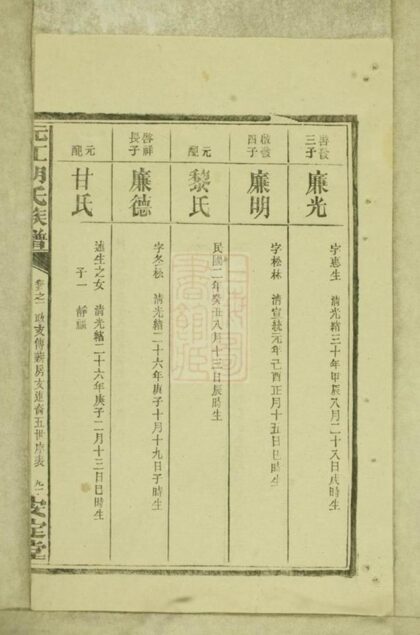 啓發三子
廉光
字惠生 清光緒三十年甲辰八月二十八日戌時生
啟發四子
廉明
字松林 清宣統元年己酉正月十五日巳時生
元配
黎氏
民國二年癸丑八月十三日辰時生
啓祥長子
廉德
字冬松 清光緒二十六年庚子十月十九日子時生
元配
甘氏
進生之女 清光緒二十六年庚子二月十三日巳時生
子一 靜
沅江胡氏族譜
卷之一 政友傳義房友進畬五世序表 九一
安定堂